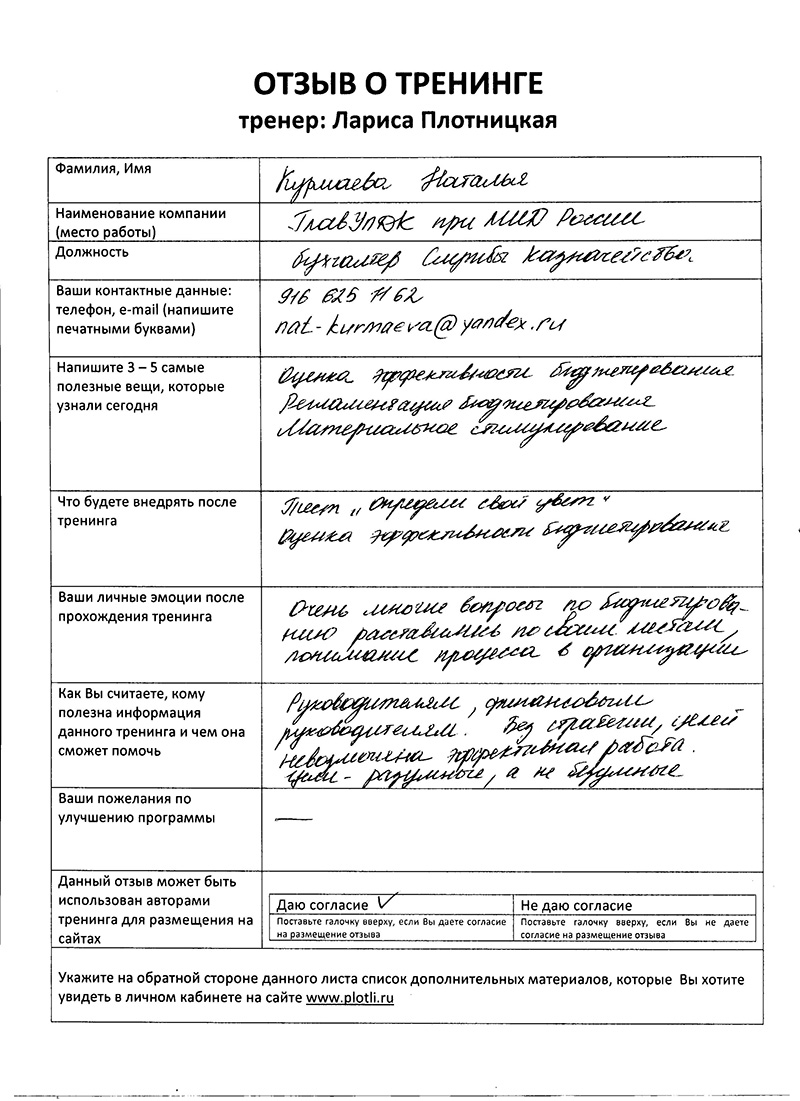 ОТЗЫВ О ТРЕНИНГЕ
тренер: Лариса Плотницкая
Фамилия, Имя
Курмаева Наталья
Наименование компании
(место работы)
ГлавУпДК при МИД России
Должность
бухгалтер Службы Казначейство.
Ваши контактные данные:
телефон, e-mail (напишите
печатными буквами)
916 625 11 62
nat-kurmaeva@yandex.ru
Напишите 3 – 5 самые
полезные вещи, которые
узнали сегодня
Оценка эффективности бюджетирования
Регламентация бюджетирования
Материальное стимулирование
Что будете внедрять после
тренинга
Тест „Определи свой цвет"
Оценка эффективности бюджетирования
Ваши личные эмоции после
прохождения тренинга
Очень многие вопросы по бюджетирова-
нию расставились по своим местам,
понимание процесса в организации
Как Вы считаете, кому
полезна информация
данного тренинга и чем она
сможет помочь
Руководителям, финансовым
руководителям. Без стратегии, целей
невозможна эффективная работа.
Цели - разумные, а не безумные
Ваши пожелания по
улучшению программы
—
Данный отзыв может быть
использован авторами
тренинга для размещения на
сайтах
Даю согласие ✓
Поставьте галочку вверху, если Вы даете согласие
на размещение отзыва
Не даю согласие
Поставьте галочку вверху, если Вы не даете
согласие на размещение отзыва
Укажите на обратной стороне данного листа список дополнительных материалов, которые Вы хотите
увидеть в личном кабинете на сайте www.plotli.ru